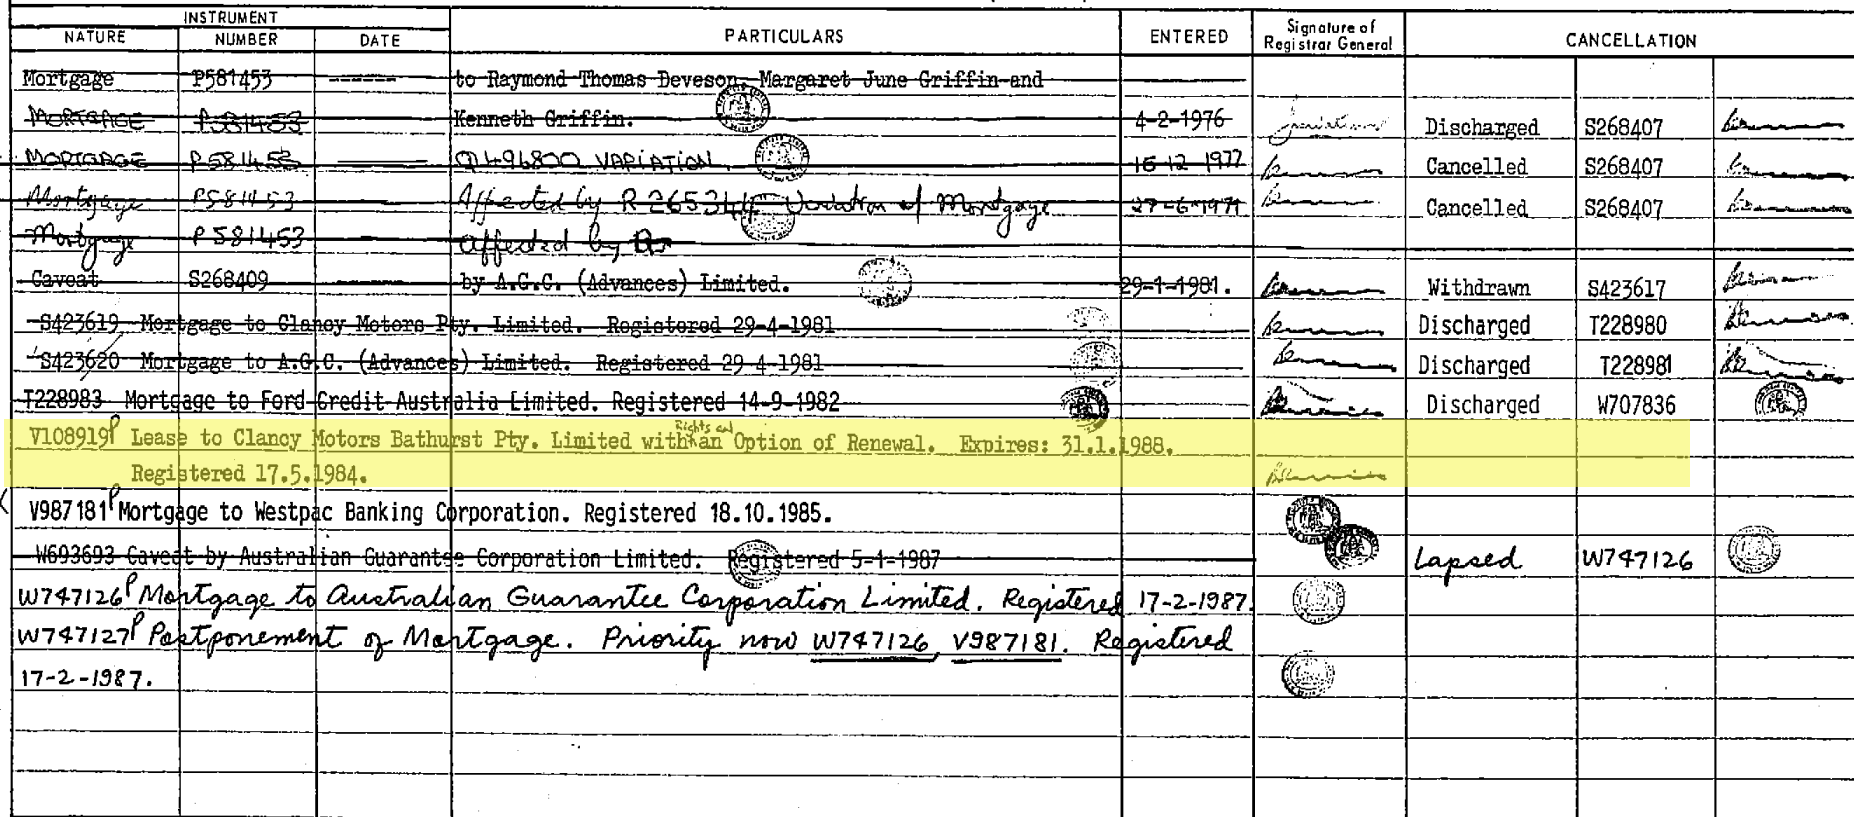 INSTRUMENT
NATURE NUMBER DATE PARTICULARS ENTERED Signature of Registrar General CANCELLATION
Mortgage P581453 to Raymond Thomas Deveson, Margaret June Griffin and
MORTGAGE P581453 Kenneth Griffin. 4-2-1976 Discharged S268407
MORTGAGE P581453 Q496800 VARIATION 16-12-1977 Cancelled S268407
Mortgage P581453 Affected by R265344 Variation of Mortgage Cancelled S268407
Mortgage P581453 affected by
Caveat S268409 by A.G.C. (Advances) Limited. 29-1-1981. Withdrawn S423617
S423619 Mortgage to Clancy Motors Pty. Limited. Registered 29-4-1981 Discharged T228980
S423620 Mortgage to A.G.C. (Advances) Limited. Registered 29-4-1981 Discharged T228981
T228983 Mortgage to Ford Credit Australia Limited. Registered 14-9-1982 Discharged W707836
V108919P Lease to Clancy Motors Bathurst Pty. Limited with Rights and an Option of Renewal. Expires: 31.1.1988.
Registered 17.5.1984.
V987181P Mortgage to Westpac Banking Corporation. Registered 18.10.1985.
W693693 Caveat by Australian Guarantee Corporation Limited. Registered 5-1-1987 Lapsed W747126
W747126P Mortgage to Australian Guarantee Corporation Limited. Registered 17-2-1987.
W747127P Postponement of Mortgage. Priority now W747126, V987181. Registered
17-2-1987.